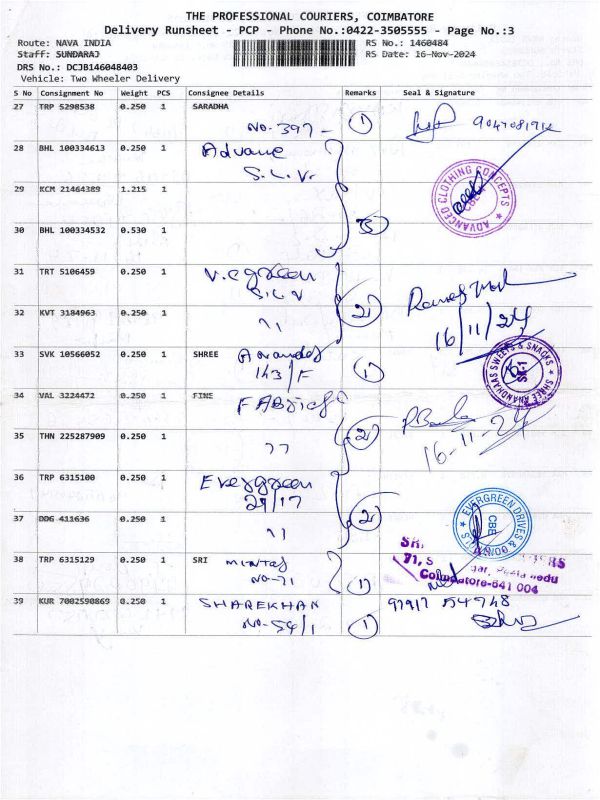 THE PROFESSIONAL COURIERS, COIMBATORE
Delivery Runsheet - PCP - Phone No.:0422-3505555 - Page No.:3
Route: NAVA INDIA RS No.: 1460484
Staff: SUNDARAJ RS Date: 16-Nov-2024
DRS No.: DCJB146048403
Vehicle: Two Wheeler Delivery
S No Consignment No Weight PCS Consignee Details Remarks Seal & Signature
27 TRP 5298538 0.250 1 SARADHA
No-397 1
28 BHL 100334613 0.250 1 Advance
S.L.V.
ADVANCED CLOTHING CONCEPTS
29 KCM 21464389 1.215 1
30 BHL 100334532 0.530 1 3
31 TRT 5106459 0.250 1 V.egreen
S.L.V
32 KVT 3184963 0.250 1 11 2
16/11/24
33 SVK 10566052 0.250 1 SHREE Anandas
143/F 1
SHREE ANANDHAAS SWEETS & SNACKS
34 VAL 3224472 0.250 1 FINE
35 THN 225287909 0.250 1 11 2
16-11-24
36 TRP 6315100 0.250 1 Evergreen
29/17
EVERGREEN DRIVES & CONTROLS
CBE
37 DDG 411636 0.250 1 11 2
38 TRP 6315129 0.250 1 SRI
No-71 1
71, S
Coimbatore-641 004
39 KUR 7002590869 0.250 1 SHAREKHAN
No-54/1 1